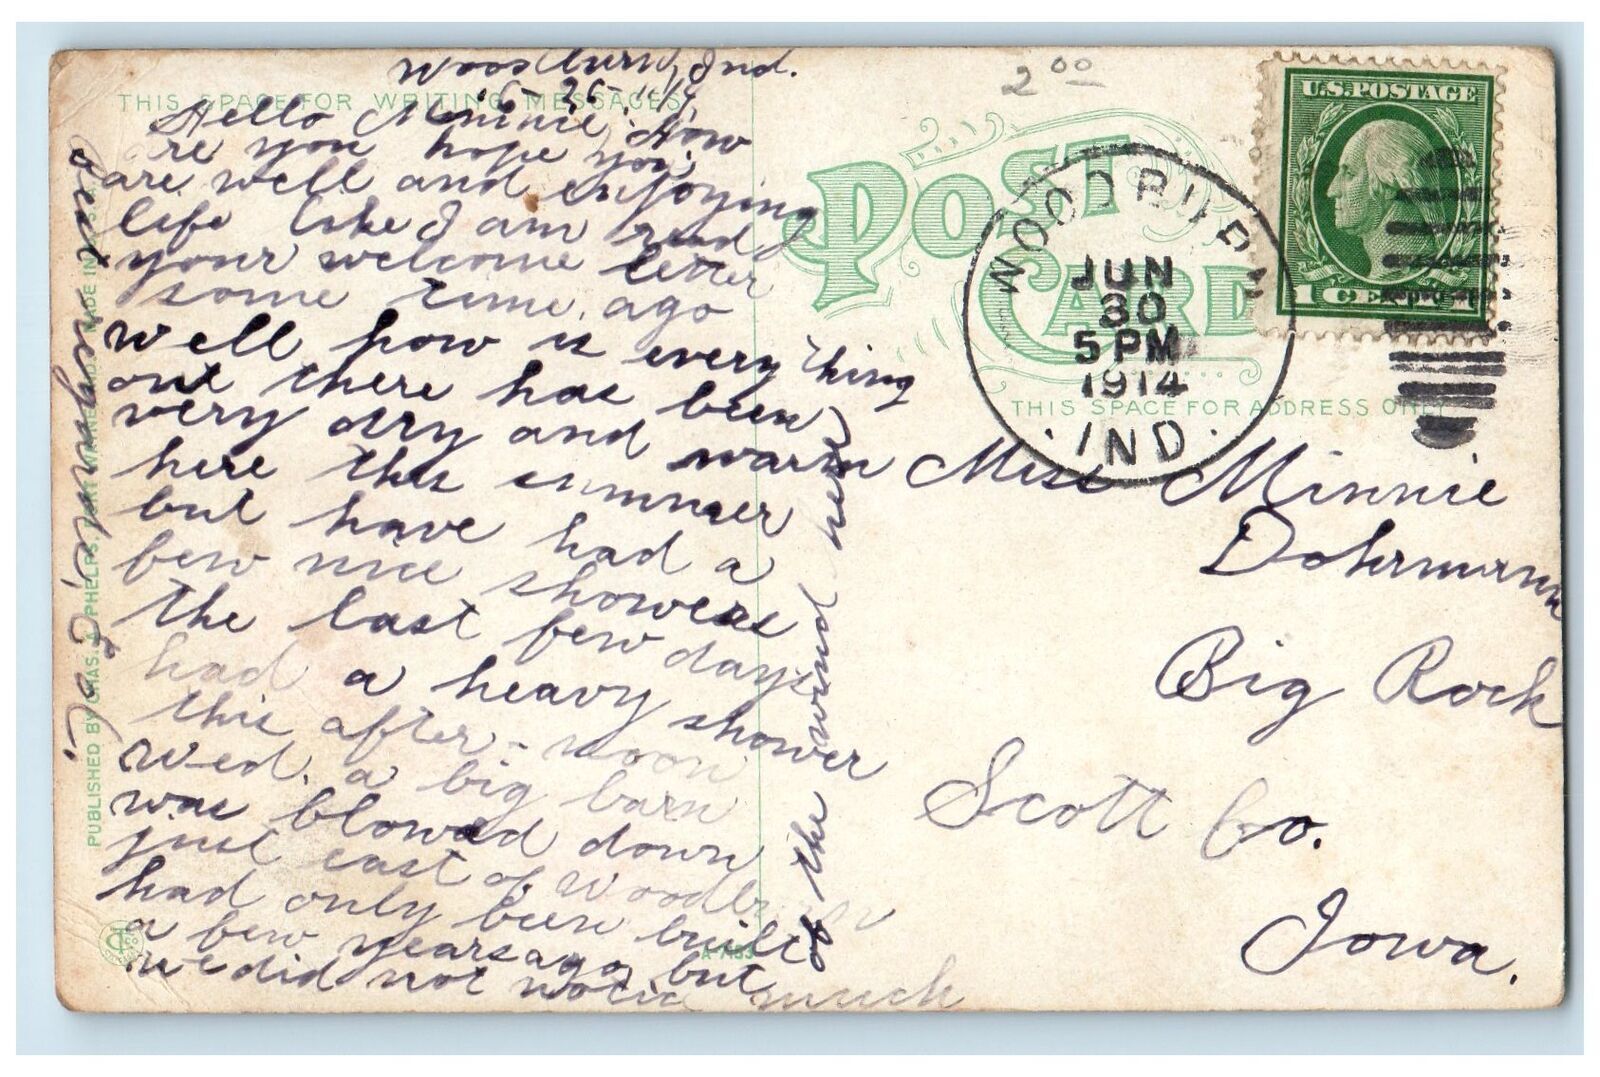 Woodburn, Ind.
6-26-1914
THIS SPACE FOR WRITING MESSAGES
Hello Minnie; How
are you hope you
are well and enjoying
life like I am recd
your welcome letter
some time, ago
well how is every thing
out there has been
very dry and warm
here this summer
but have had a
few nice showers
the last few days
had a heavy shower
this after-noon
Wed. a big barn
was blowed down
just east of Woodburn
had only been built
a few years ago but
we did not notic much
of the wind here
best regards, E. C.
PUBLISHED BY CHAS. A. PHELPS, FORT WAYNE, IND. MADE IN U.S.A.
A-7153
2 00
POST
CARD
THIS SPACE FOR ADDRESS ONLY
WOODBURN
JUN
30
5 PM
1914
IND.
U.S. POSTAGE
1 CENT 1
Miss Minnie
Dohrmann
Big Rock
Scott Co.
Iowa.